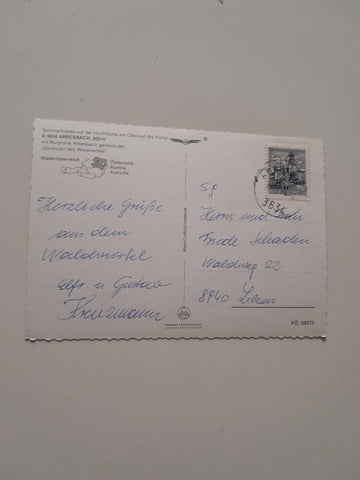 Sommerfrische auf der Hochfläche am Oberlauf des Kamp
A-3634 ARBESBACH, 852 m
mit Burgruine Arbesbach, genannt der
„Stockzahn des Waldviertels"
Niederösterreich
Österreich
Austria
Autriche
Herzliche Grüße
aus dem
Waldviertel
u. Gustav
Alpine Luftbild
3634
Herrn und Frau
Friede Schaden
Waldweg 22
8940 Liezen
FÖ 56372